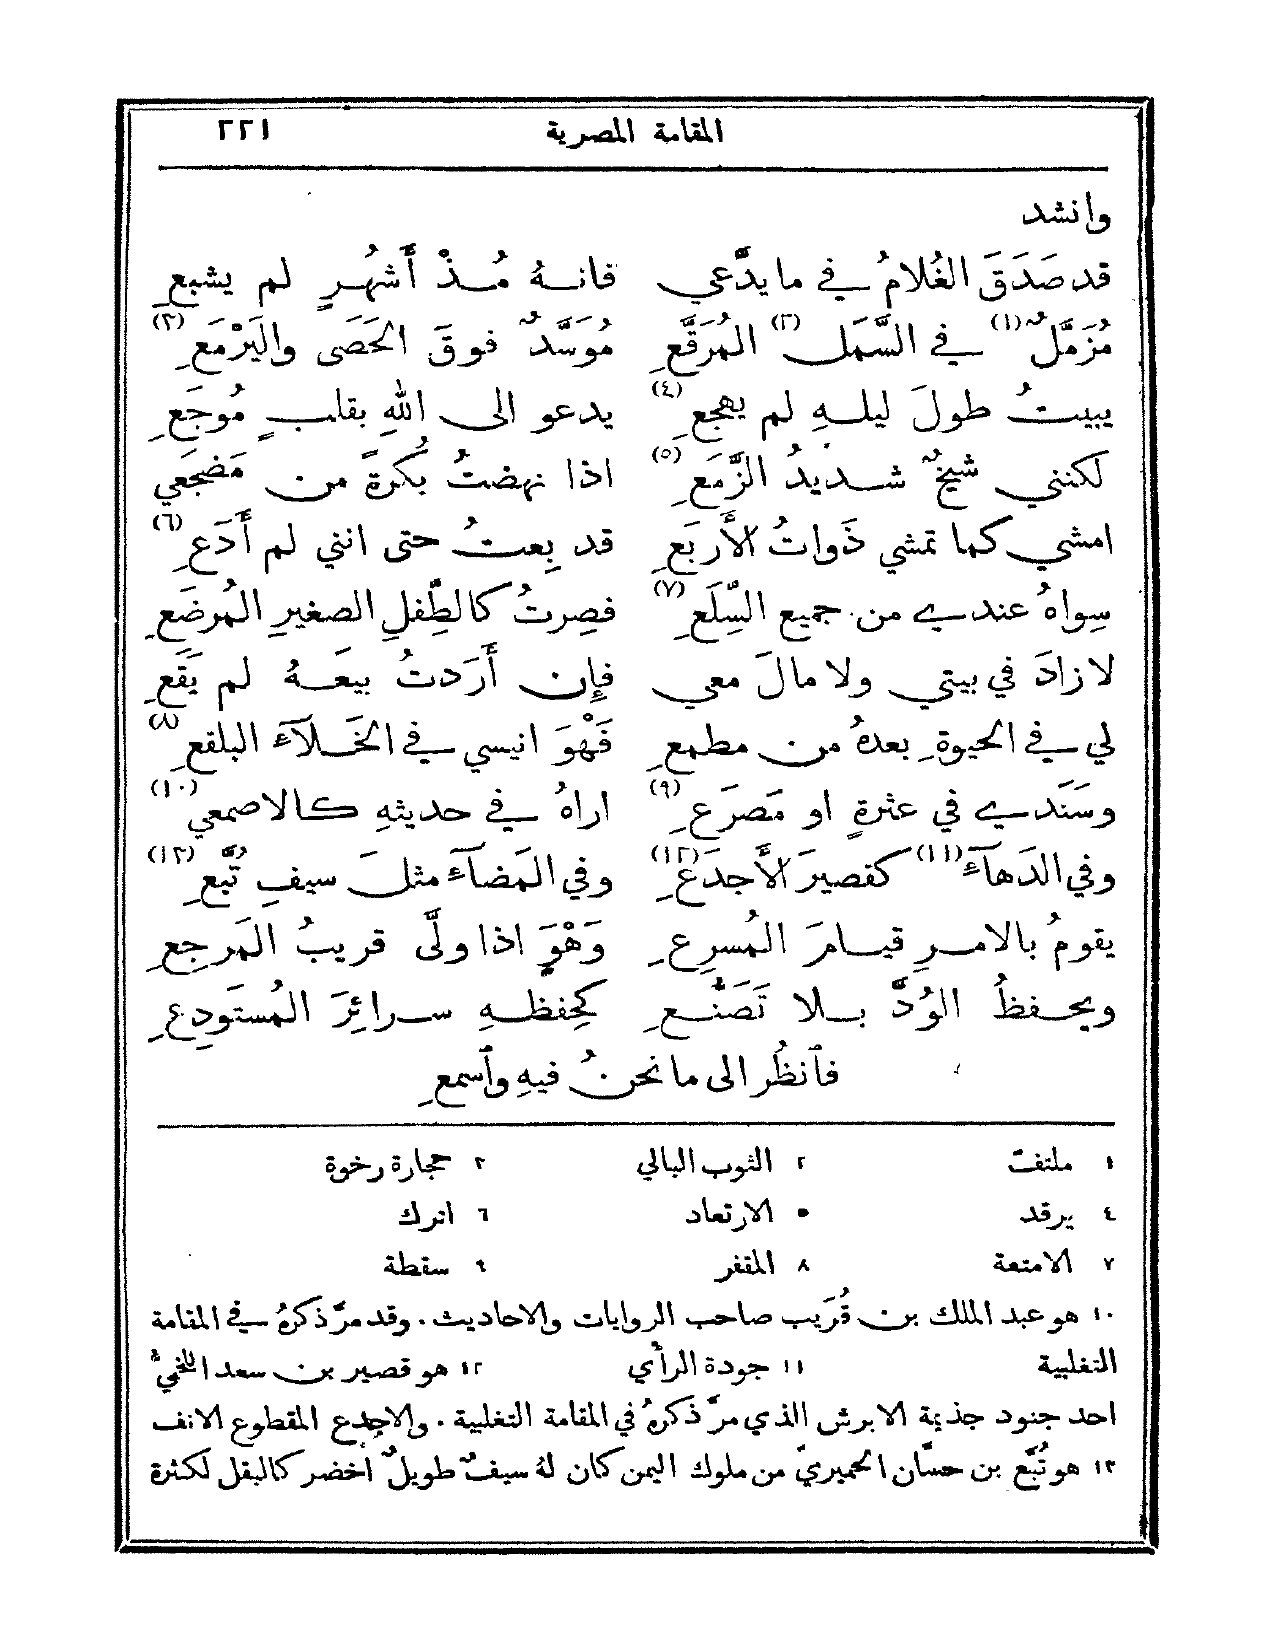 المقامة المصرية ٢٢١
وانشد
قد صَدَقَ الغُلامُ في ما يدَّعي فانهُ مُذْ أَشهُرٍ لم يشبعِ
مُزمَّلٌ (١) في السَّمَلِ (٢) المُرَقَّعِ مُوسَّدٌ فوقَ الحَصَى واليَرْمَعِ (٣)
يبيتُ طولَ ليلهِ لم يهجعِ (٤) يدعو الى اللهِ بقلبٍ مُوجَعِ
لكنني شيخٌ شديدُ الزَّمَعِ (٥) اذا نهضتُ بُكرةً من مَضجَعي
امشي كما تمشي ذَواتُ الأَربَعِ قد بِعتُ حتى انني لم أَدَعِ (٦)
سِواهُ عندي من جميع السِّلَعِ (٧) فصِرتُ كالطِّفلِ الصغيرِ المُرضَعِ
لا زادَ في بيتي ولا مالَ معي فإِن أَرَدتُ بيعَهُ لم يَقَعِ
لي في الحيوةِ بعدهُ من مطمعِ فَهْوَ انيسي في الخَلآءِ البلقعِ (٨)
وسَنَدي في عثرةٍ او مَصرَعِ (٩) اراهُ في حديثهِ كالاصمعي (١٠)
وفي الدَهآءِ (١١) كقصيرَ الأَجدَعِ (١٢) وفي المَضآءِ مثلَ سيفِ تُبَّعِ (١٣)
يقومُ بالامرِ قيامَ المُسرِعِ وَهْوَ اذا ولَّى قريبُ المَرجِعِ
ويحفظُ الوُدَّ بلا تَصَنُّعِ كحِفظهِ سرائِرَ المُستَودِعِ
فٱنظُر الى ما نحنُ فيهِ وٱسمعِ
١ ملتفّ ٢ الثوب البالي ٣ حجارة رخوة
٤ يرقد ٥ الارتعاد ٦ اترك
٧ الامتعة ٨ المقفر ٩ سقطة
١٠ هو عبد الملك بن قُرَيب صاحب الروايات والاحاديث. وقد مرَّ ذكرهُ في المقامة
التغلبية ١١ جودة الرأي ١٢ هو قصير بن سعد اللخميّ
احد جنود جذيمة الابرش الذي مرَّ ذكرهُ في المقامة التغلبية. والاجدع المقطوع الانف
١٣ هو تُبَّع بن حسَّان الحميريّ من ملوك اليمن كان لهُ سيفٌ طويلٌ اخضر كالبقل لكثرة